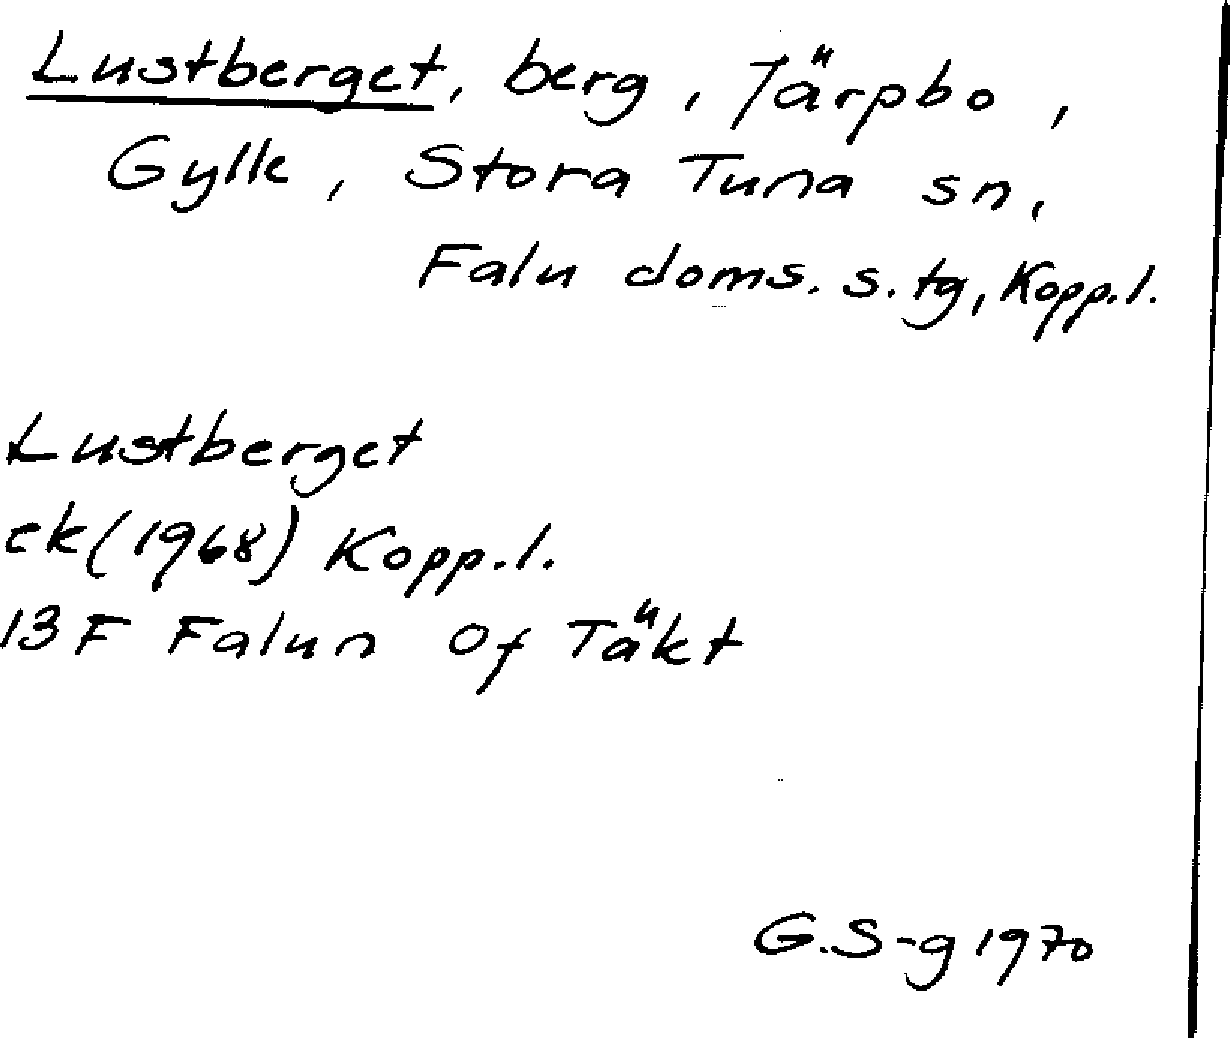 Lustberget, berg, Järpbo,
Gylle, Stora Tuna sn,
Falu doms. s. tg, Kopp.l.
Lustberget
ek(1968) Kopp.l.
13F Falun 0f Täkt
G.S-g 1970